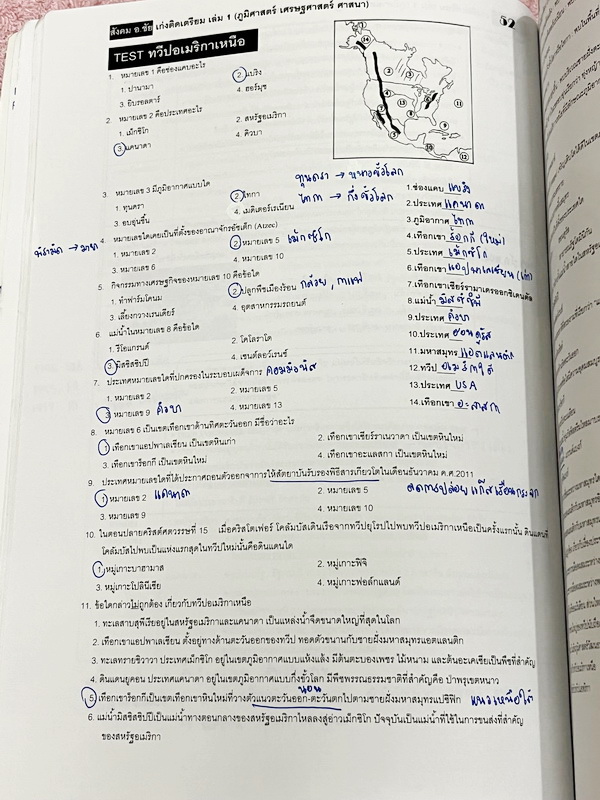 สังคม อ.ชัย เก่งติดเตรียม เล่ม 1 (ภูมิศาสตร์ เศรษฐศาสตร์ ศาสนา)
52
TEST ทวีปอเมริกาเหนือ
1. หมายเลข 1 คือช่องแคบอะไร
1. ปานามา 2. แบริง
3. ยิบรอลตาร์ 4. ฮอร์มุซ
2. หมายเลข 2 คือประเทศอะไร
1. เม็กซิโก 2. สหรัฐอเมริกา
3. แคนาดา 4. คิวบา
ทุนดรา → หนาวขั้วโลก
3. หมายเลข 3 มีภูมิอากาศแบบใด
1. ทุนดรา 2. ไทกา ไทกา → กึ่งขั้วโลก
3. อบอุ่นชื้น 4. เมดิเตอร์เรเนียน
4. หมายเลขใดเคยเป็นที่ตั้งของอาณาจักรอัซเต็ก (Atzec)
1. หมายเลข 2 2. หมายเลข 5 เม็กซิโก
3. หมายเลข 6 4. หมายเลข 10
5. กิจกรรมทางเศรษฐกิจของหมายเลข 10 คือข้อใด
1. ทำฟาร์มโคนม 2. ปลูกพืชเมืองร้อน กล้วย, กาแฟ
3. เลี้ยงกวางเรนเดียร์ 4. อุตสาหกรรมรถยนต์
6. แม่น้ำในหมายเลข 8 คือข้อใด
1. ริโอแกรนด์ 2. โคโลราโด
3. มิสซิสซิปปี 4. เซนต์ลอว์เรนซ์
7. ประเทศหมายเลขใดที่ปกครองในระบอบเผด็จการ คอมมิวนิสต์
1. หมายเลข 2 2. หมายเลข 5
3. หมายเลข 9 คิวบา 4. หมายเลข 13
1.ช่องแคบ แบริง
2.ประเทศ แคนาดา
3.ภูมิอากาศ ไทกา
4.เทือกเขา ร็อกกี้ (ใหม่)
5.ประเทศ เม็กซิโก
6.เทือกเขา แอปพาเลเชียน (เก่า)
7.เทือกเขาเซียร์รามาเดรออกซิเดนตัล
8.แม่น้ำ มิสซิสซิปปี
9.ประเทศ คิวบา
10.ประเทศ ฮอนดูรัส
11.มหาสมุทร แอตแลนติก
12.ทวีป อเมริกาใต้
13.ประเทศ USA
14.เทือกเขา อะลาสกา
8. หมายเลข 6 เป็นเทือกเขาด้านทิศตะวันออก มีชื่อว่าอะไร
1. เทือกเขาแอปพาเลเชียน เป็นเขตหินเก่า 2. เทือกเขาเซียร์ราเนวาดา เป็นเขตหินใหม่
3. เทือกเขาร็อกกี เป็นเขตหินใหม่ 4. เทือกเขาอะแลสกา เป็นเขตหินใหม่
9. ประเทศหมายเลขใดที่ได้ประกาศถอนตัวออกจากการให้สัตยาบันรับรองพิธีสารเกียวโตในเดือนธันวาคม ค.ศ.2011
1. หมายเลข 2 แคนาดา 2. หมายเลข 5 ลดการปล่อยแก๊สเรือนกระจก
3. หมายเลข 9 4. หมายเลข 10
10. ในตอนปลายคริสต์ศตวรรษที่ 15 เมื่อคริสโตเฟอร์ โคลัมบัสเดินเรือจากทวีปยุโรปไปพบทวีปอเมริกาเหนือเป็นครั้งแรกนั้น ดินแดนที่
โคลัมบัสไปพบเป็นแห่งแรกสุดในทวีปใหม่นั้นคือดินแดนใด
1. หมู่เกาะบาฮามาส 2. หมู่เกาะฟิจิ
3. หมู่เกาะโปลินีเซีย 4. หมู่เกาะฟอล์กแลนด์
11. ข้อใดกล่าวไม่ถูกต้อง เกี่ยวกับทวีปอเมริกาเหนือ
1. ทะเลสาบสุพีเรียอยู่ในสหรัฐอเมริกาและแคนาดา เป็นแหล่งน้ำจืดขนาดใหญ่ที่สุดในโลก
2. เทือกเขาแอปพาเลเชียน ตั้งอยู่ทางด้านตะวันออกของทวีป ทอดตัวขนานกับชายฝั่งมหาสมุทรแอตแลนติก
3. ทะเลทรายชิวาวา ประเทศเม็กซิโก อยู่ในเขตภูมิอากาศแบบแห้งแล้ง มีต้นตะบองเพชร ไม้หนาม และต้นอะเคเซียเป็นพืชที่สำคัญ
4. ดินแดนยูคอน ประเทศแคนาดา อยู่ในเขตภูมิอากาศแบบกึ่งขั้วโลก มีพืชพรรณธรรมชาติที่สำคัญคือ ป่าพรุเขตหนาว
นอน
5. เทือกเขาร็อกกีเป็นเขตเทือกเขาหินใหม่ที่วางตัวแนวตะวันออก-ตะวันตกไปตามชายฝั่งมหาสมุทรแปซิฟิก แนวเหนือใต้
6. แม่น้ำมิสซิสซิปปีเป็นแม่น้ำทางตอนกลางของสหรัฐอเมริกาไหลลงสู่อ่าวเม็กซิโก ปัจจุบันเป็นแม่น้ำที่ใช้ในการขนส่งที่สำคัญ
ของสหรัฐอเมริกา